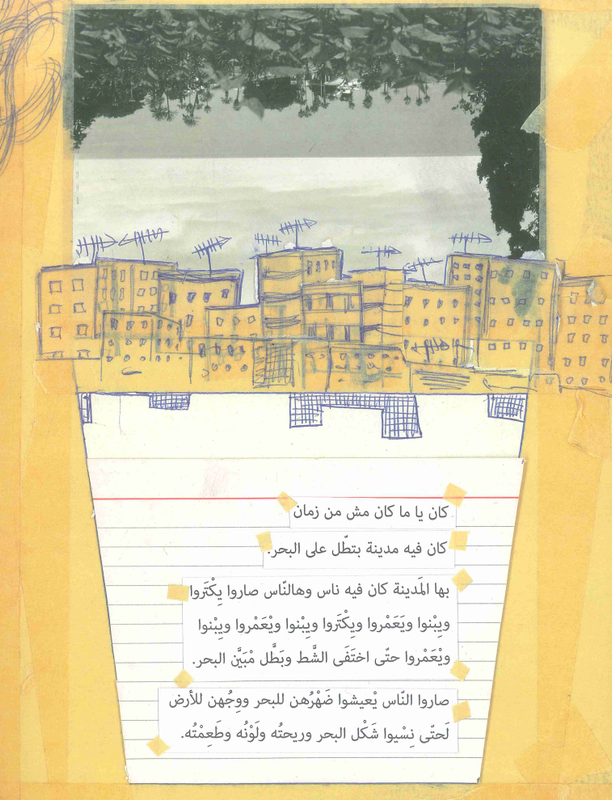 كان يا ما كان مش من زمان
كان فيه مدينة بتطّل على البحر.
بها المَدينة كان فيه ناس وهالنّاس صاروا يِكْتَروا
ويِبْنوا ويَعَمْروا ويِكْتَروا ويِبْنوا ويْعَمْروا ويبْنوا
ويْعَمْروا حتّى اختَفَى الشَّط وبَطَّل مْبَيَّن البحر.
صاروا النّاس يْعيشوا ضَهْرُهن للبحر ووِجُهن للأرض
لَحتّى نِسْيوا شَكْل البحر وريحتُه ولَوْنُه وطَعِمْتُه.